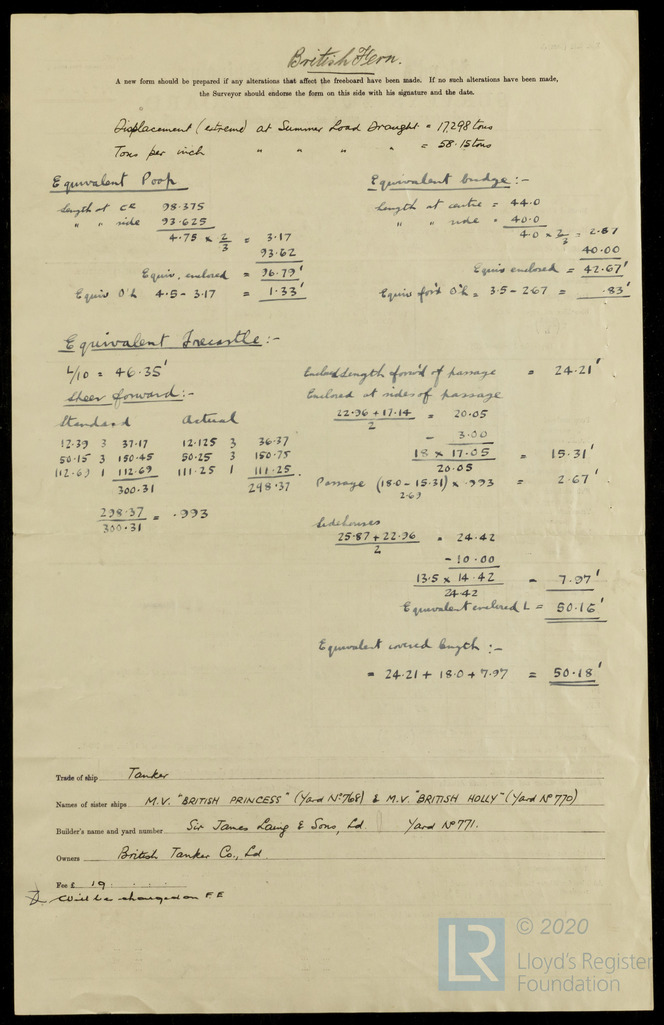 British Fern.
A new form should be prepared if any alterations that affect the freeboard have been made. If no such alterations have been made,
the Surveyor should endorse the form on this side with his signature and the date.
Displacement (extreme) at Summer Load Draught = 17,298 tons
Tons per inch " " " " = 58.15 tons
Equivalent Poop
Length at CR 98.375
" " side 93.625
4.75 × 2/3 = 3.17
93.62
Equiv. enclosed = 96.79'
Equiv O'h 4.5 - 3.17 = 1.33'
Equivalent bridge :-
Length at centre = 44.0
" " side = 40.0
4.0 × 2/3 = 2.67
40.00
Equiv enclosed = 42.67'
Equiv for'd O'h = 3.5 - 2.67 = .83'
Equivalent Forecastle :-
L/10 = 46.35'
Sheer forward :-
Standard Actual
12.39 3 37.17 12.125 3 36.37
50.15 3 150.45 50.25 3 150.75
112.69 1 112.69 111.25 1 111.25
300.31 298.37
298.37 / 300.31 = .993
Enclosed length for'd of passage = 24.21'
Enclosed at sides of passage
22.96 + 17.14 / 2 = 20.05
- 3.00
18 × 17.05 / 20.05 = 15.31'
Passage (18.0 - 15.31) × .993 = 2.67'
2.69
Sidehouses
25.87 + 22.96 / 2 = 24.42
- 10.00
13.5 × 14.42 / 24.42 = 7.97'
Equivalent enclosed L = 50.16'
Equivalent covered length :-
= 24.21 + 18.0 + 7.97 = 50.18'
Trade of ship Tanker
Names of sister ships M.V. "BRITISH PRINCESS" (Yard No 768) & M.V. "BRITISH HOLLY" (Yard No 770)
Builder's name and yard number Sir James Laing & Sons, Ld. Yard No 771.
Owners British Tanker Co., Ld
Fee £ 19 . . . .
Will be charged on F.E
© 2020
LR Lloyd's Register
Foundation